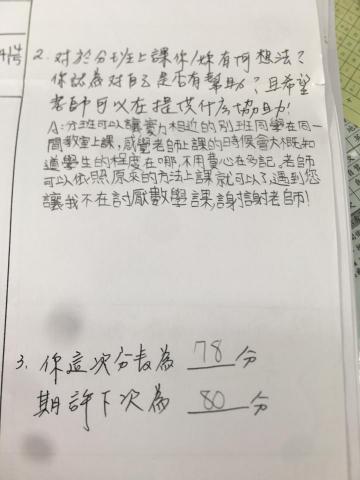 2. 对於分班上課你/妳有何想法?
你認為对自己是否有幫助? 且希望
老師可以在提供什么協助!
A:分班可以讓實力相近的別班同學在同一
間教室上課,感覺老師上課的時候會大概知
道學生的程度在哪,不用費心在多記。老師
可以依照原來的方法上課就可以了,遇到您
讓我不在討厭數學課,謝謝老師!
3. 你這次分表為 78 分
期許下次為 80 分